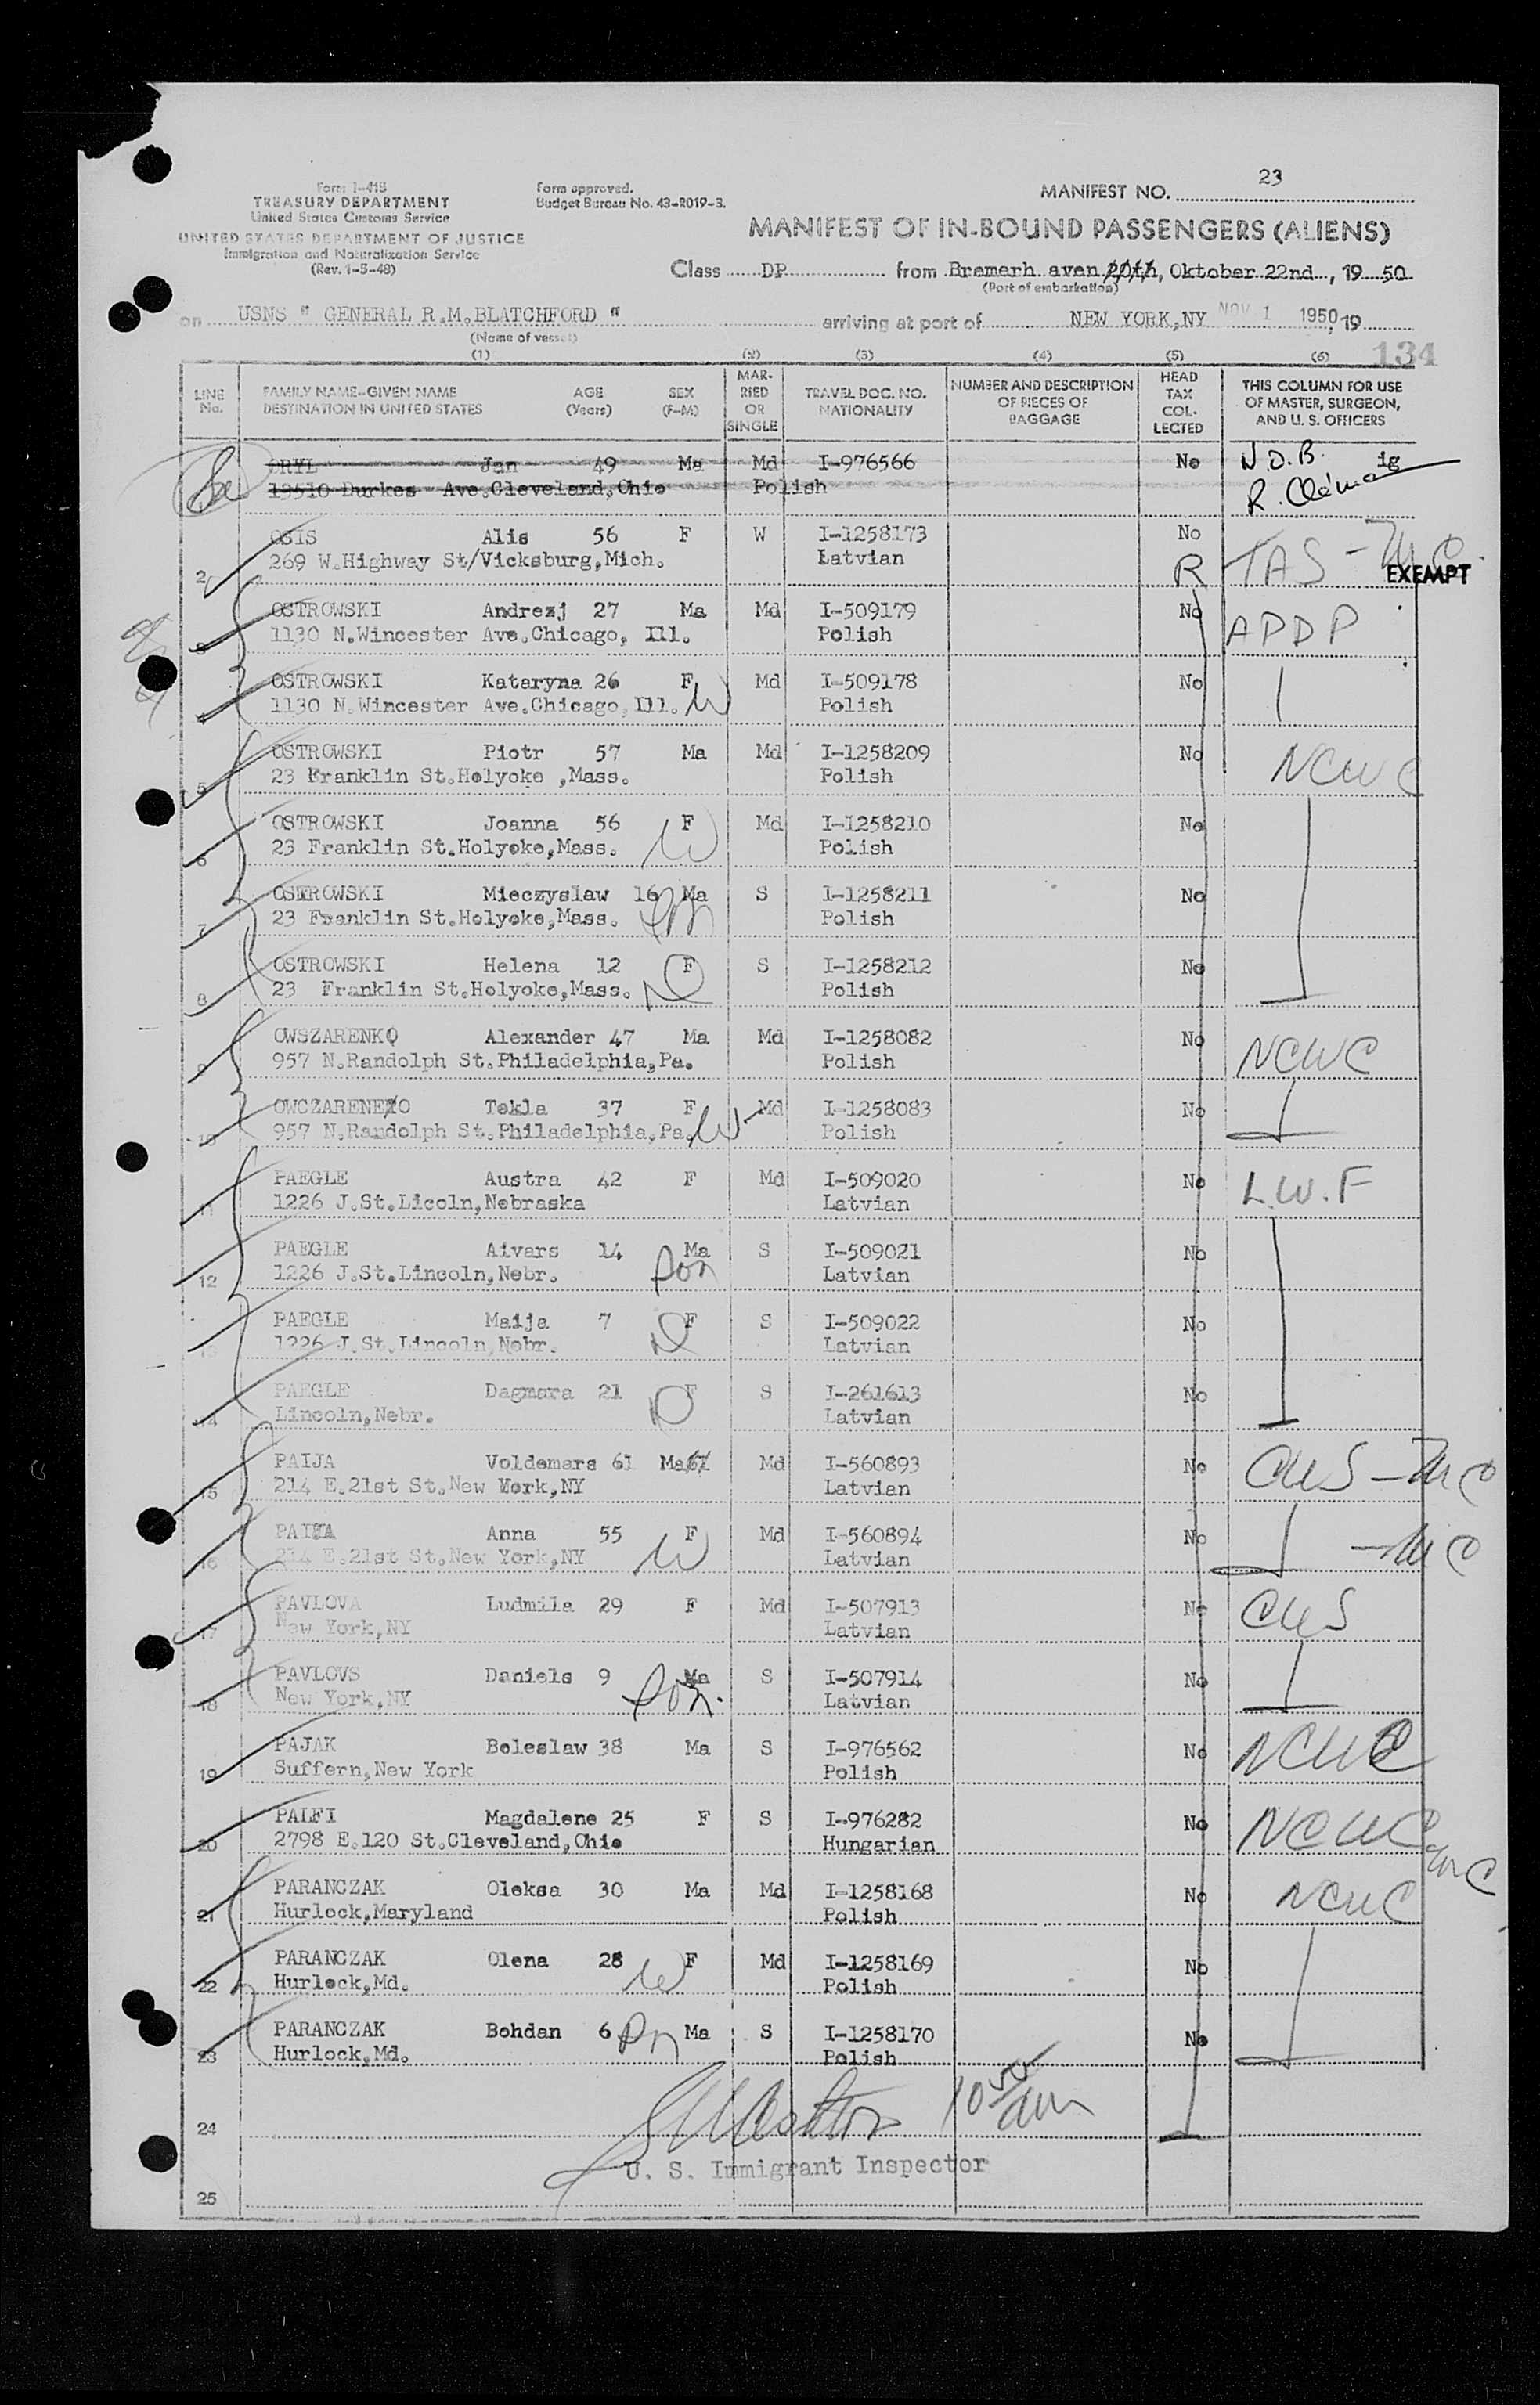 23
Form I-415
TREASURY DEPARTMENT
United States Customs Service
UNITED STATES DEPARTMENT OF JUSTICE
Immigration and Naturalization Service
(Rev. 1-5-48)
Form approved.
Budget Bureau No. 43-R019-3.
MANIFEST NO.
MANIFEST OF IN-BOUND PASSENGERS (ALIENS)
Class DP from Bremerh aven 20th, Oktober 22nd, 19 50
(Port of embarkation)
on USNS " GENERAL R.M.BLATCHFORD " arriving at port of NEW YORK,NY NOV 1 1950 19
(Name of vessel)
134
(1) (2) (3) (4) (5) (6)
LINE No. FAMILY NAME-GIVEN NAME DESTINATION IN UNITED STATES AGE (Years) SEX (F-M) MARRIED OR SINGLE TRAVEL DOC. NO. NATIONALITY NUMBER AND DESCRIPTION OF PIECES OF BAGGAGE HEAD TAX COL-LECTED THIS COLUMN FOR USE OF MASTER, SURGEON, AND U. S. OFFICERS
Jan 49 Ma Md I-976566 No N.O.B. ig
Ave.Cleveland,Ohio Polish R.
OSIS Alis 56 F W I-1258173 No
2 269 W.Highway St/Vicksburg,Mich. Latvian R TAS - EXEMPT
OSTROWSKI Andrezj 27 Ma Md I-509179 No
3 1130 N.Wincester Ave.Chicago, Ill. Polish APDP
OSTROWSKI Kataryna 26 F Md I-509178 No
4 1130 N.Wincester Ave.Chicago, Ill. W Polish
OSTROWSKI Piotr 57 Ma Md I-1258209 No
5 23 Franklin St.Holyoke ,Mass. Polish NCWC
OSTROWSKI Joanna 56 F Md I-1258210 No
6 23 Franklin St.Holyoke,Mass. W Polish
OSTROWSKI Mieczyslaw 16 Ma S I-1258211 No
7 23 Franklin St.Holyoke,Mass. son Polish
OSTROWSKI Helena 12 F S I-1258212 No
8 23 Franklin St.Holyoke,Mass. D Polish
OWSZARENKO Alexander 47 Ma Md I-1258082 No
9 957 N.Randolph St.Philadelphia,Pa. Polish NCWC
Tekla 37 F Md I-1258083 No
10 957 N.Randolph St.Philadelphia,Pa. W Polish
PAEGLE Austra 42 F Md I-509020 No
11 1226 J.St.Licoln,Nebraska Latvian L.W.F
PAEGLE Aivars 14 Ma S I-509021 No
12 1226 J.St.Lincoln,Nebr. son Latvian
PAEGLE Maija 7 F S I-509022 No
13 1226 J.St.Lincoln,Nebr. D Latvian
PAEGLE Dagmara 21 F S I-261613 No
14 Lincoln,Nebr. D Latvian
PAIJA Voldemars 61 Ma Md I-560893 No
15 214 E.21st St.New York,NY Latvian CWS
Anna 55 F Md I-560894 No
16 214 E.21st St.New York,NY W Latvian
PAVLOVA Ludmila 29 F Md I-507913 No
17 New York,NY Latvian CWS
PAVLOVS Daniels 9 Ma S I-507914 No
18 New York,NY son. Latvian
PAJAK Boleslaw 38 Ma S I-976562 No
19 Suffern,New York Polish NCWC
PALFI Magdalene 25 F S I-976282 No
20 2798 E.120 St.Cleveland,Ohio Hungarian NCWC
PARANCZAK Oleksa 30 Ma Md I-1258168 No
21 Hurlock,Maryland Polish NCWC
PARANCZAK Olena 28 F Md I-1258169 No
22 Hurlock,Md. W Polish
PARANCZAK Bohdan 6 son Ma S I-1258170 No
23 Hurlock,Md. Polish
24
U. S. Immigrant Inspector
25